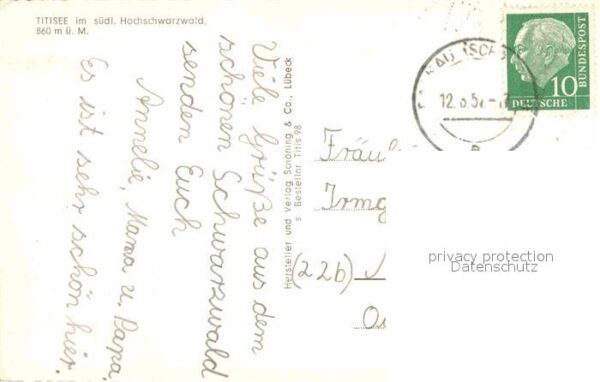 TITISEE im südl. Hochschwarzwald,
860 m ü. M.
Viele Grüße aus dem
schönen Schwarzwald
senden Euch
Annelie, Mama u. Papa.
Es ist sehr schön hier.
Hersteller und Verlag Schöning & Co., Lübeck
s Bestellnr. Titis 98
DEUTSCHE
BUNDESPOST
10
Irmg
(22b)
privacy protection
Datenschutz